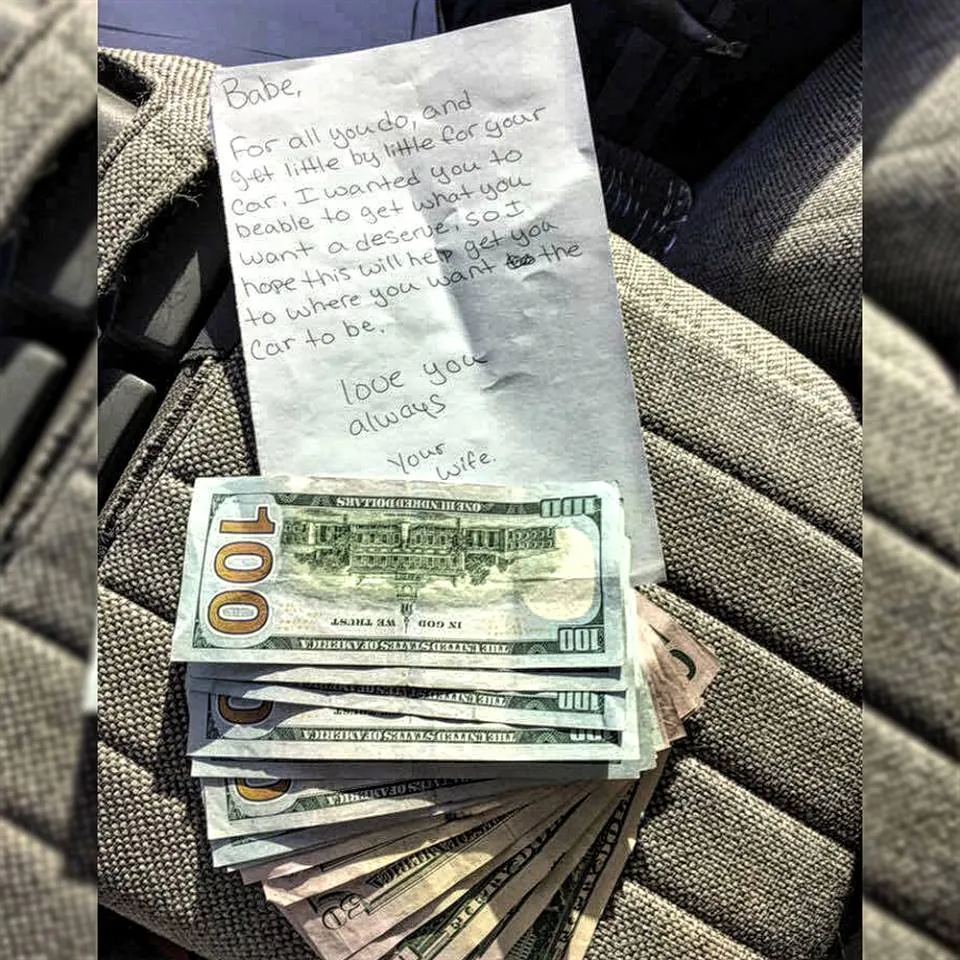 Babe,
For all you do, and
get little by little for your
car. I wanted you to
beable to get what you
want a deserve, so I
hope this will help get you
to where you want the
car to be.
love you
always
your
wife.
ONE HUNDRED DOLLARS
100
100
IN GOD WE TRUST
THE UNITED STATES OF AMERICA
100
100
THE UNITED STATES OF AMERICA
THE UNITED STATES OF AMERICA
AMERICA